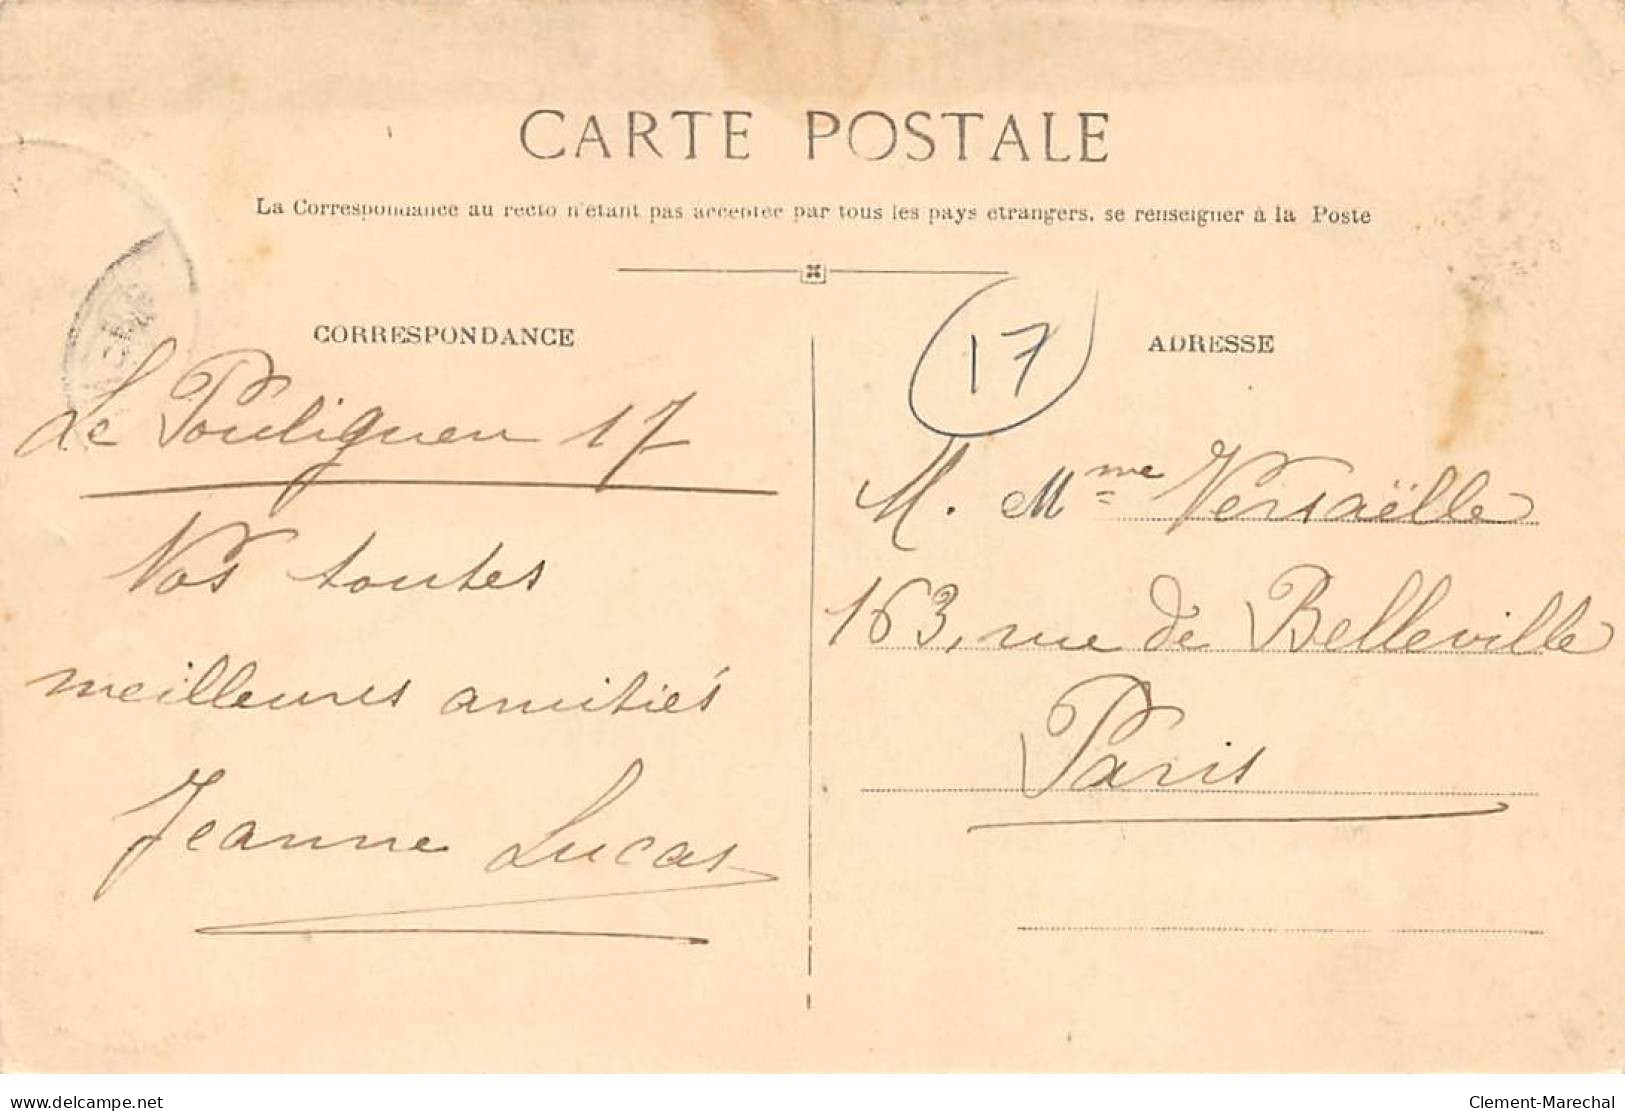 CARTE POSTALE
La Correspondance au recto n'étant pas acceptée par tous les pays étrangers, se renseigner à la Poste
CORRESPONDANCE
Le Pouliguen 17
Nos toutes
meilleures amitiés
Jeanne Lucas
17
ADRESSE
M. Mme Versaëlle
163, rue de Belleville
Paris
www.delcampe.net
Clement-Marechal